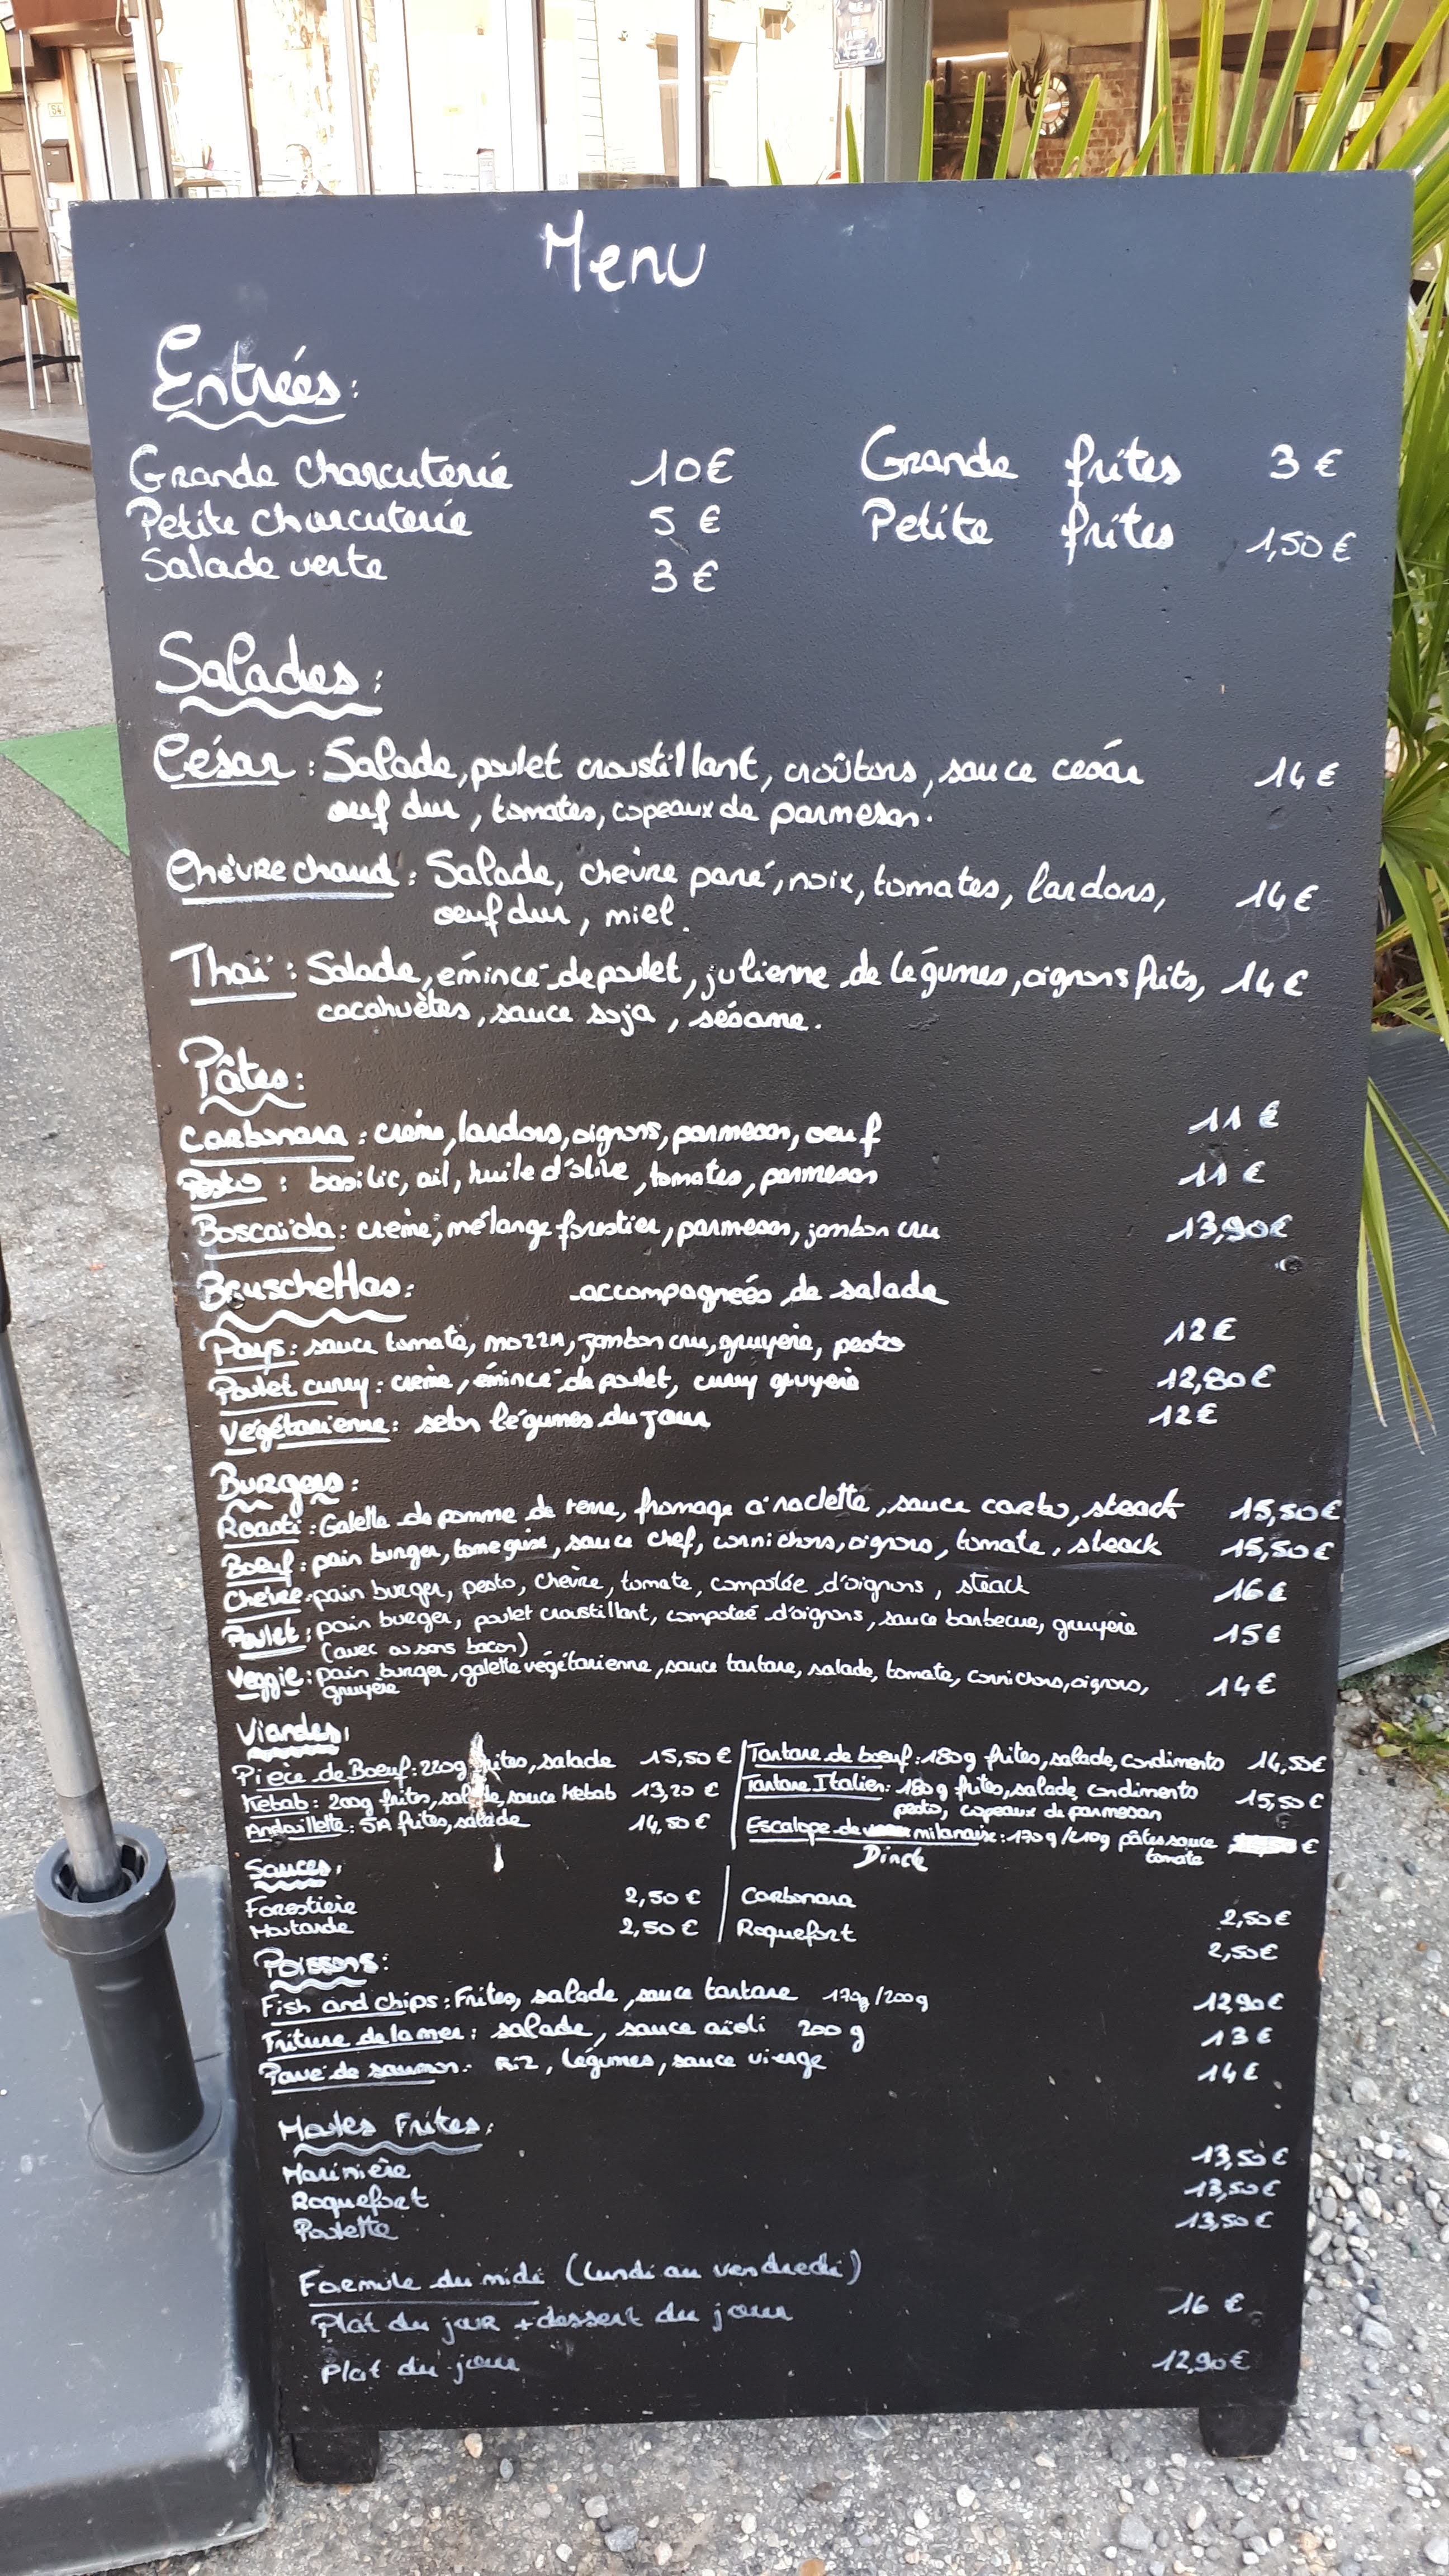 Menu
Entrées:
Grande charcuterie 10€ Grande frites 3€
Petite charcuterie 5€ Petite frites 1,50€
Salade verte 3€
Salades:
César : Salade, poulet croustillant, croûtons, sauce cesár 14€
œuf dur, tomates, copeaux de parmesan.
Chèvre chaud : Salade, chèvre pané, noix, tomates, lardons, 14€
œuf dur, miel.
Thaï : Salade, émincé de poulet, julienne de légumes, oignons frits, 14€
cacahuètes, sauce soja, sésame.
Pâtes:
Carbonara : crème, lardons, oignons, parmesan, œuf 11€
Pesto : basilic, ail, huile d'olive, tomates, parmesan 11€
Boscaïola : crème, mélange forestier, parmesan, jambon cru 13,90€
Bruschettas: accompagnées de salade
Pays : sauce tomate, mozza, jambon cru, gruyère, pesto 12€
Poulet curry : crème, émincé de poulet, curry gruyère 12,80€
Végétarienne : selon légumes du jour 12€
Burgers:
Roasti : Galette de pomme de terre, fromage à raclette, sauce carbo, steack 15,50€
Bœuf : pain burger, tome grise, sauce chef, cornichons, oignons, tomate, steack 15,50€
Chèvre : pain burger, pesto, chèvre, tomate, compotée d'oignons, steack 16€
Poulet : pain burger, poulet croustillant, compoteé d'oignons, sauce barbecue, gruyère 15€
(avec ou sans bacon)
Veggie : pain burger, galette végétarienne, sauce tartare, salade, tomate, cornichons, oignons, 14€
gruyère
Viandes:
Pièce de Bœuf : 220g frites, salade 15,50€ Tartare de bœuf : 180g frites, salade, condiments 14,50€
Kebab : 200g frites, salade, sauce kebab 13,20€ Tartare Italien : 180g frites, salade, condiments 15,50€
pesto, copeaux de parmesan
Andouillette : 5A frites, salade 14,50€ Escalope de milanaise : 170g/210g pâtes sauce €
Dinde tomate
Sauces:
Forestière 2,50€ Carbonara 2,50€
Moutarde 2,50€ Roquefort 2,50€
Poissons:
Fish and chips : Frites, salade, sauce tartare 170g/200g 12,90€
Friture de la mer : salade, sauce aïoli 200g 13€
Pavé de saumon : Riz, légumes, sauce vierge 14€
Moules Frites:
Marinière 13,50€
Roquefort 13,50€
Poulette 13,50€
Formule du midi (lundi au vendredi)
Plat du jour + dessert du jour 16€
Plat du jour 12,90€
54